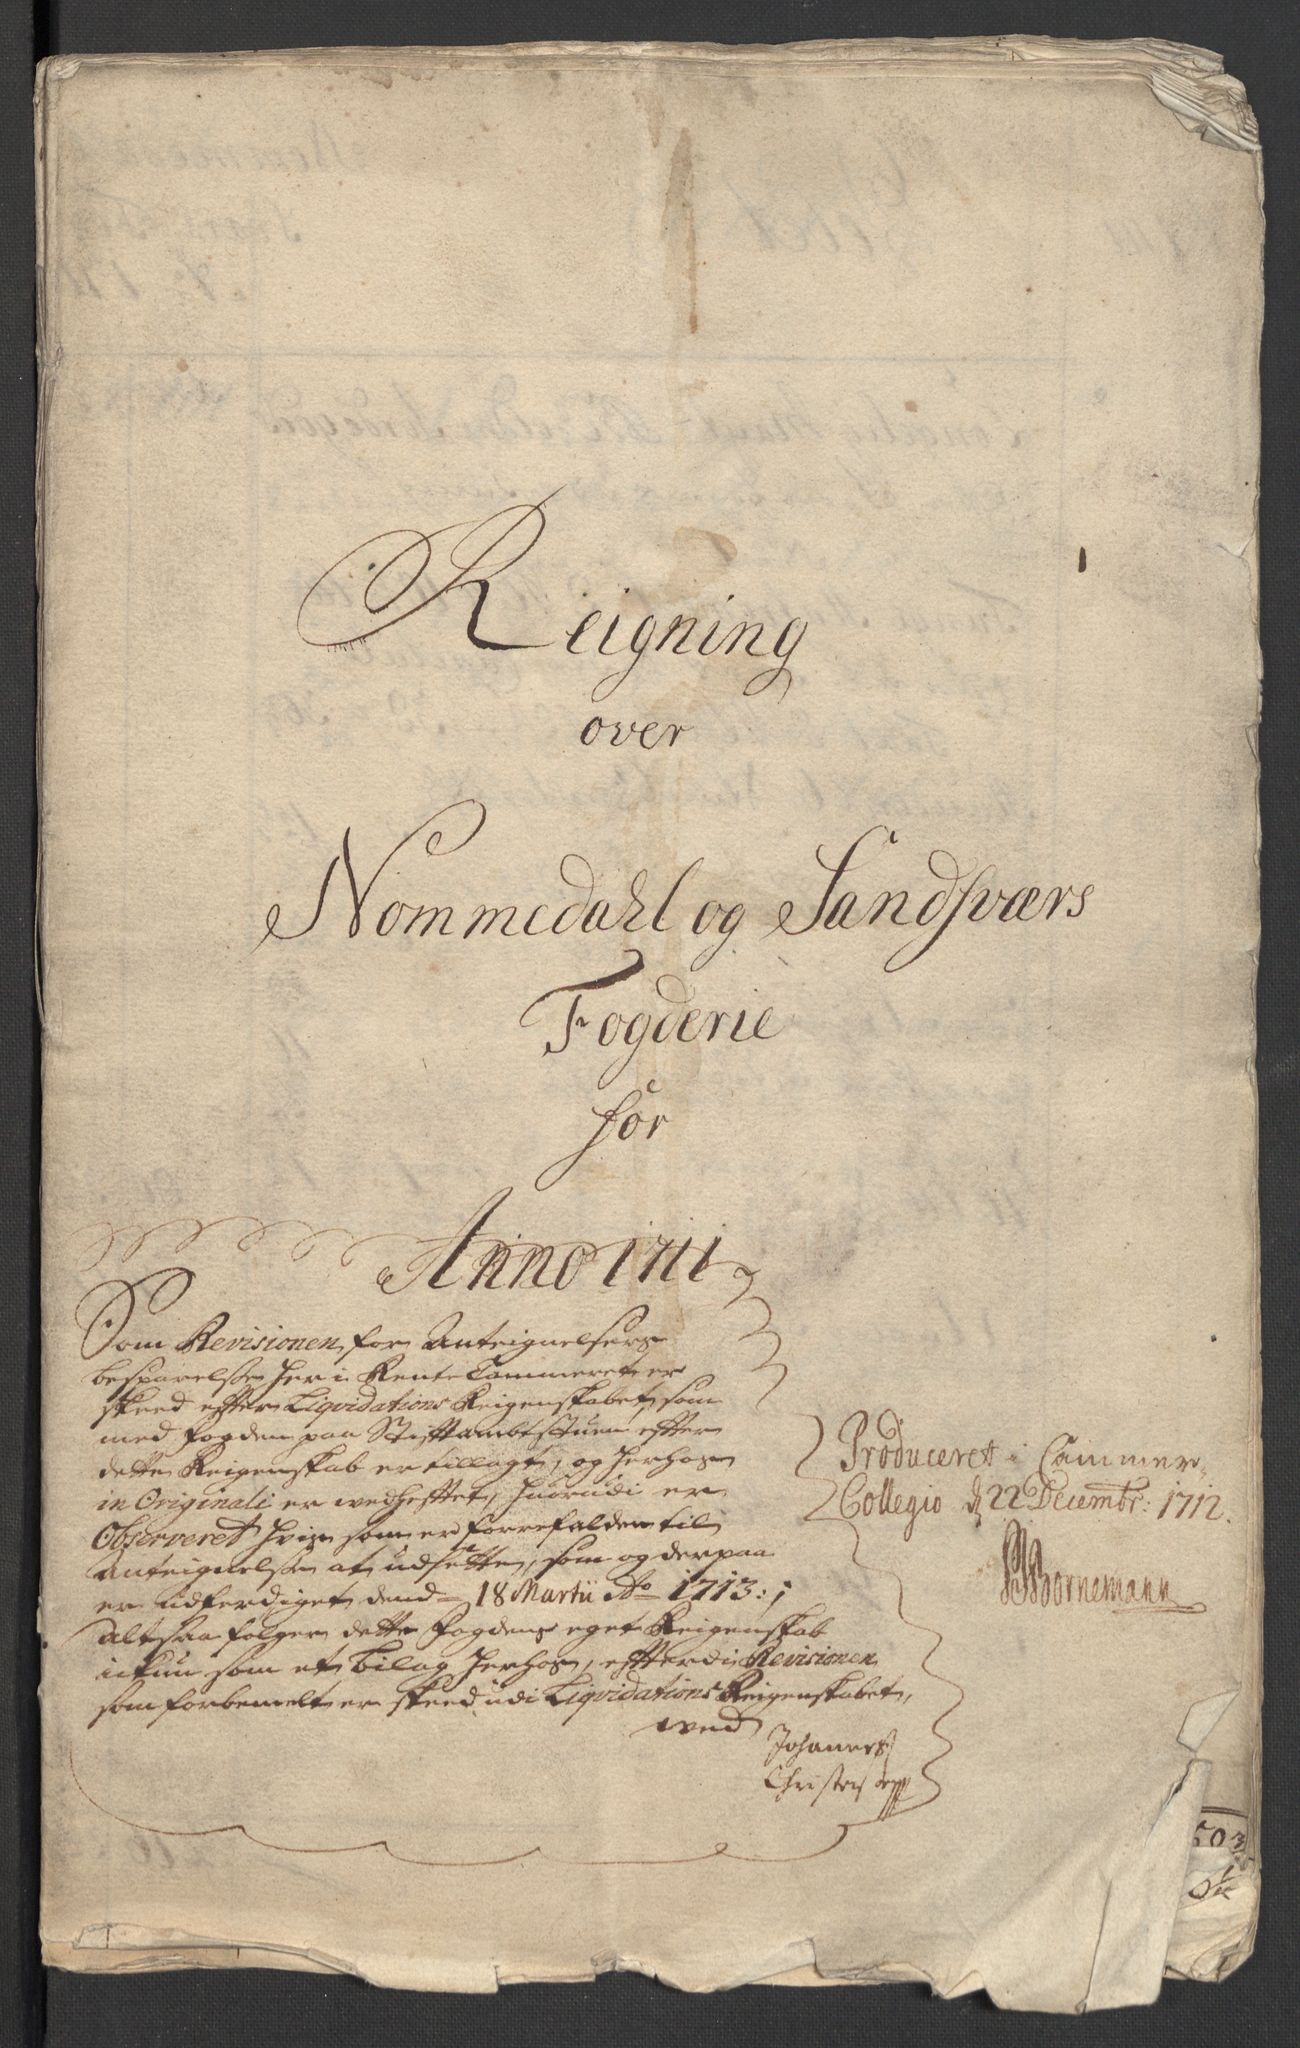 Reigning
over
Nommedahl og Sandsværs
Fogderie
for
Anno 1711
Som Revisionen for Anteignelsers
besparelse her i Rente Cammeret er
skeed effter Liqvidations Reigenskabet, som
med fogden paa Stifttambtstuen effter
dette Reigenskab er tillagt, og herhos
in Originali er wedhefftet, huorudi er
Observeret hvis som er forrefalden til
Anteignelse at udsette, som og derpaa
er udferdiget dend 18 Martii Ao 1713:;
altsaa følger dette fogdens eget Reigenskab
ickun som et bilag herhos, effterdi Revisionen
som forbemelt er skeed udi Liqvidations Reigenskabet,
wed
Johanes
Produceret i Cammer
Collegio d 22 Decembr: 1712.
Bornemann